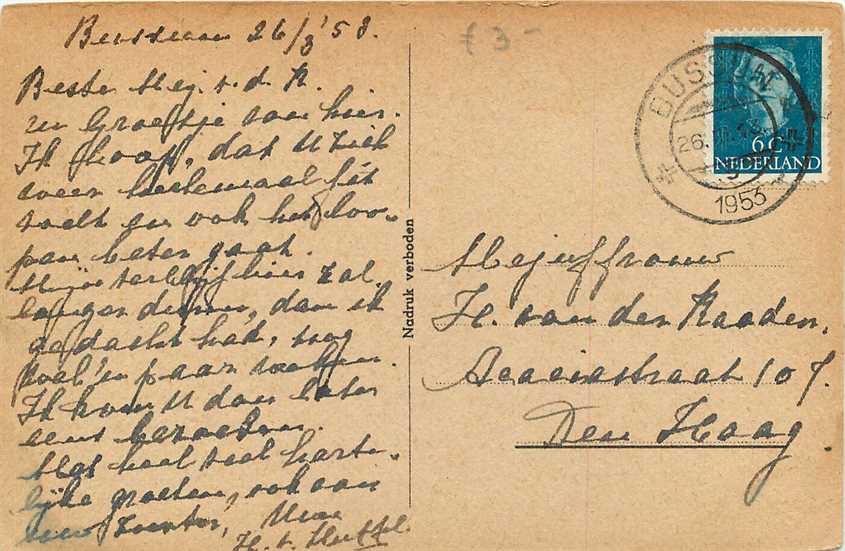 Bussum 26/3 '53.
Beste Mej. v. d. R.
'n Groetje van hier.
Ik hoop, dat U zich
weer heelemaal fit
voelt en ook het loo-
pen beter gaat.
Mijn verblijf hier zal
langer duren, dan ik
gedacht had, nog
wel 'n paar weken.
Ik kom U dan later
eens bezoeken.
Met heel veel harte-
lijke groeten, ook aan
uw zuster, Uwe
H. v.
£ 3-
Nadruk verboden
BUSSUM
26.III.53
1953
6 C
NEDERLAND
Mejuffrouw
H. van der Raaden.
Acaciastraat 107.
Den Haag.